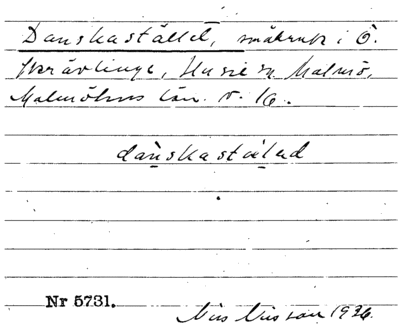 Danskastället, småbruk i Ö.
Skrävlinge, Husie sn, Malmö,
Malmöhus län. v. 16.
danskastälad
Nr 5731.
Nils Nilsson 1926.